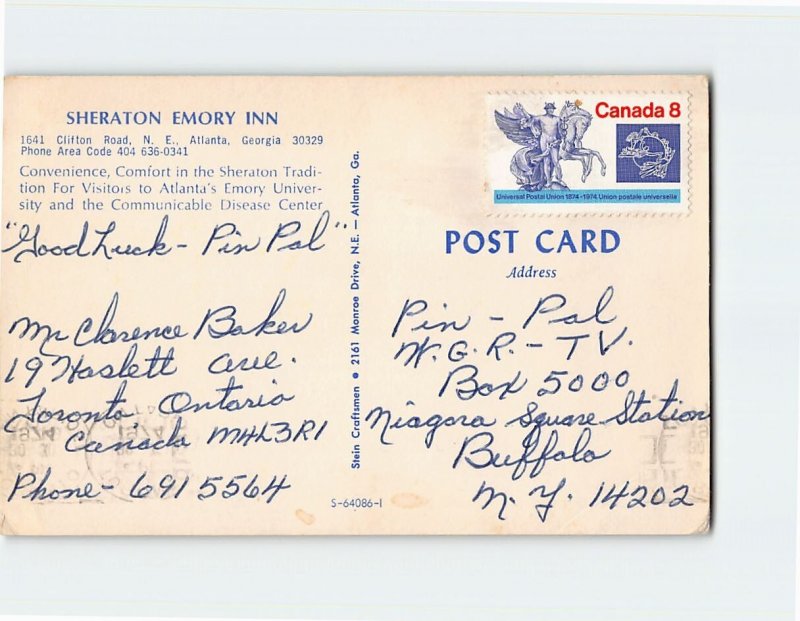 SHERATON EMORY INN
1641 Clifton Road, N. E., Atlanta, Georgia 30329
Phone Area Code 404 636-0341
Convenience, Comfort in the Sheraton Tradi-
tion For Visitors to Atlanta's Emory Univer-
sity and the Communicable Disease Center
"Good Luck - Pin Pal"
Mr Clarence Baker
19 Haslett Ave.
Toronto, Ontario
Canada M4L3R1
Phone - 691 5564
Stein Craftsmen • 2161 Monroe Drive, N.E. — Atlanta, Ga.
S-64086-1
Canada 8
Universal Postal Union 1874-1974 Union postale universelle
POST CARD
Address
Pin - Pal
W. G. R. - T V.
Box 5000
Niagara Square Station
Buffalo
N. Y. 14202
1974
1974